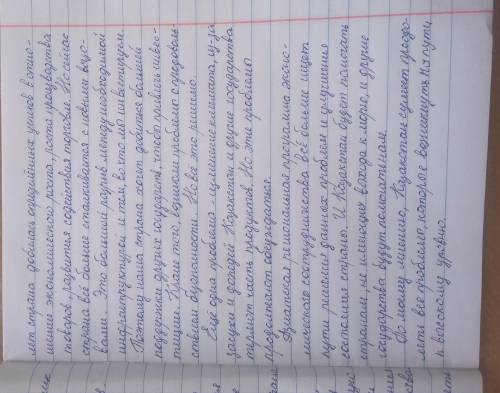 лет страна добилась определённых успехов в отно-
шении экономического роста, роста производства
товаров, развития содействия торговле. Но сейчас
страна всё больше сталкивается с новыми вызо-
вами. Это большой разрыв между необходимой
инфраструктурой и тем, во что мы инвестируем.
Поэтому наша страна хочет добиться большей
поддержки других государств, чтобы привлечь инвес-
тиции. Кроме того, возникли проблемы с продоволь-
ственной безопасности. Но всё это решаемо.
Ещё одна проблема - изменение климата, из-за
засухи и дождей Казахстан и другие государства
теряют часть продуктов. Но эти проблемы
продолжают обсуждаться.
Азиатская региональная программа эконо-
мического сотрудничества всё больше ищет
пути решения данных проблем и улучшения
состояния страны. И Казахстан будет помогать
странам не имеющих выхода к морю, и другие
государства будут помогать нам.
По моему мнению, Казахстан сумеет преодо-
леть все проблемы, которые возникнут на пути
к высокому уровню.